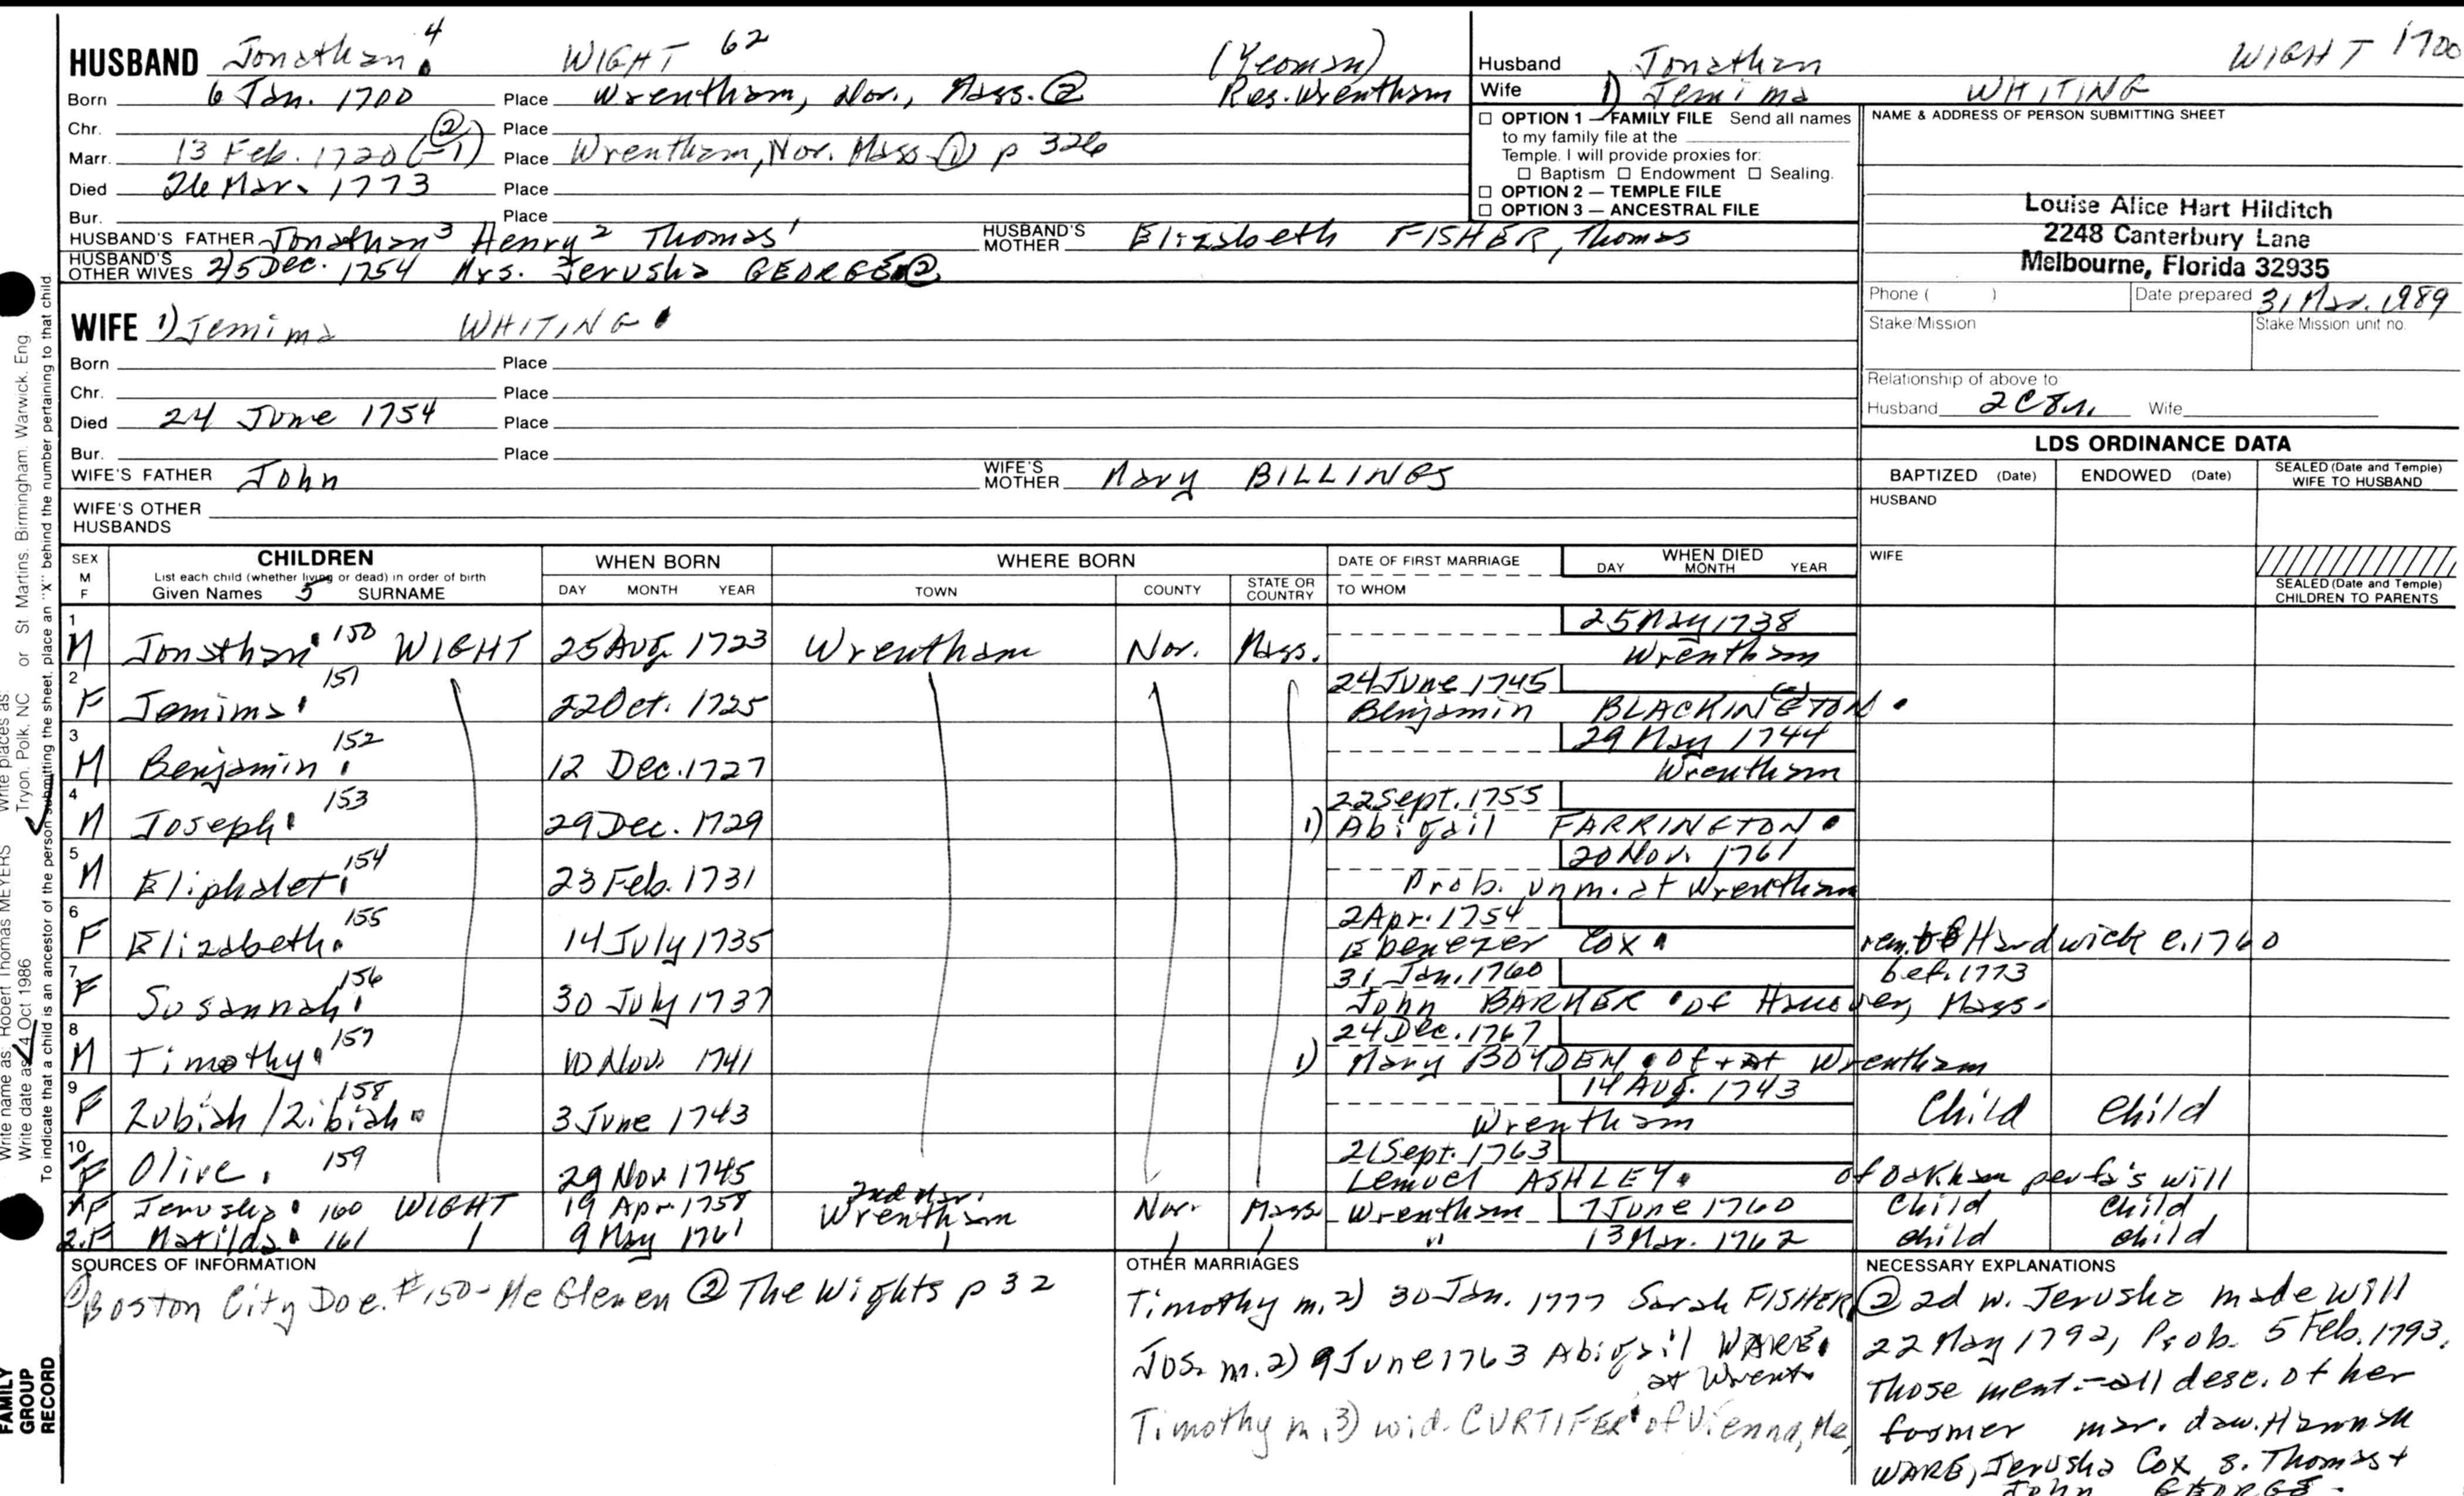 HUSBAND Jonathan 4 WIGHT 62 (Yeoman)
Born 6 Jan. 1700 Place Wrentham, Nor., Mass. ② Res. Wrentham
Chr. Place
Marr. 13 Feb. 1720 (②-1) Place Wrentham, Nor. Mass ① p 326
Died 26 Mar. 1773 Place
Bur. Place
HUSBAND'S FATHER Jonathan 3 Henry 2 Thomas 1 HUSBAND'S MOTHER Elizabeth FISHER, Thomas
HUSBAND'S OTHER WIVES 2) 5 Dec. 1754 Mrs. Jerusha GEORGE ②
Husband Jonathan WIGHT 1700
Wife 1) Jemima WHITING
☐ OPTION 1 — FAMILY FILE Send all names
to my family file at the
Temple. I will provide proxies for:
☐ Baptism ☐ Endowment ☐ Sealing.
☐ OPTION 2 — TEMPLE FILE
☐ OPTION 3 — ANCESTRAL FILE
NAME & ADDRESS OF PERSON SUBMITTING SHEET
Louise Alice Hart Hilditch
2248 Canterbury Lane
Melbourne, Florida 32935
Phone ( ) Date prepared 31 Mar. 1989
Stake/Mission Stake Mission unit no.
Relationship of above to
Husband 2C8r. Wife
WIFE 1) Jemima WHITING
Born Place
Chr. Place
Died 24 June 1754 Place
Bur. Place
WIFE'S FATHER John WIFE'S MOTHER Mary BILLINGS
WIFE'S OTHER HUSBANDS
LDS ORDINANCE DATA
BAPTIZED (Date) ENDOWED (Date) SEALED (Date and Temple) WIFE TO HUSBAND
HUSBAND
WIFE
SEALED (Date and Temple) CHILDREN TO PARENTS
SEX M F CHILDREN WHEN BORN WHERE BORN DATE OF FIRST MARRIAGE WHEN DIED
List each child (whether living or dead) in order of birth
Given Names 5 SURNAME DAY MONTH YEAR TOWN COUNTY STATE OR COUNTRY TO WHOM DAY MONTH YEAR
1 M Jonathan 150 WIGHT 25 Aug. 1723 Wrentham Nor. Mass. 25 May 1738
Wrentham
2 F Jemima 151 22 Oct. 1725 24 June 1745
Benjamin BLACKINGTON
3 M Benjamin 152 12 Dec. 1727 29 May 1744
Wrentham
4 M Joseph 153 29 Dec. 1729 22 Sept. 1755
1) Abigail FARRINGTON
5 M Eliphalet 154 23 Feb. 1731 20 Nov. 1761
Prob. unm. at Wrentham
6 F Elizabeth 155 14 July 1735 2 Apr. 1754
Ebenezer Cox rem. to Hardwick c. 1760
7 F Susannah 156 30 July 1737 31 Jan. 1760 bef. 1773
John BARHER of Hanover, Mass.
8 M Timothy 157 10 Nov. 1741 24 Dec. 1767
1) Mary BOYDEN of + at Wrentham
9 F Zubiah / Zibiah 158 3 June 1743 14 Aug. 1743 Child Child
Wrentham
10 F Olive 159 29 Nov 1745 21 Sept. 1763
Lemuel ASHLEY of Oakham per fa's will
2nd mar.
1. F Jerusha 160 WIGHT 19 Apr. 1758 Wrentham Nor. Mass Wrentham 7 June 1760 Child Child
2. F Matilda 161 9 May 1761 " 13 Mar. 1762 child child
SOURCES OF INFORMATION
① Boston City Doc. #150 - McGlenen ② The Wights p 32
OTHER MARRIAGES
Timothy m. 2) 30 Jan. 1777 Sarah FISHER
Jos. m. 2) 9 June 1763 Abigail WARE
at Wrent.
Timothy m. 3) wid. CURTIFER of Vienna, Me.
NECESSARY EXPLANATIONS
② 2d w. Jerusha made will
22 May 1792, Prob. 5 Feb. 1793.
Those ment. - all desc. of her
former mar. dau. Hannah
WARE, Jerusha Cox s. Thomas +
John GEORGE.
Write name as: Robert Thomas MEYERS Write places as: Tryon, Polk, NC or St Martins, Birmingham, Warwick, Eng
Write date as: 4 Oct 1986
To indicate that a child is an ancestor of the person submitting the sheet, place an "X" behind the number pertaining to that child.
FAMILY
GROUP
RECORD